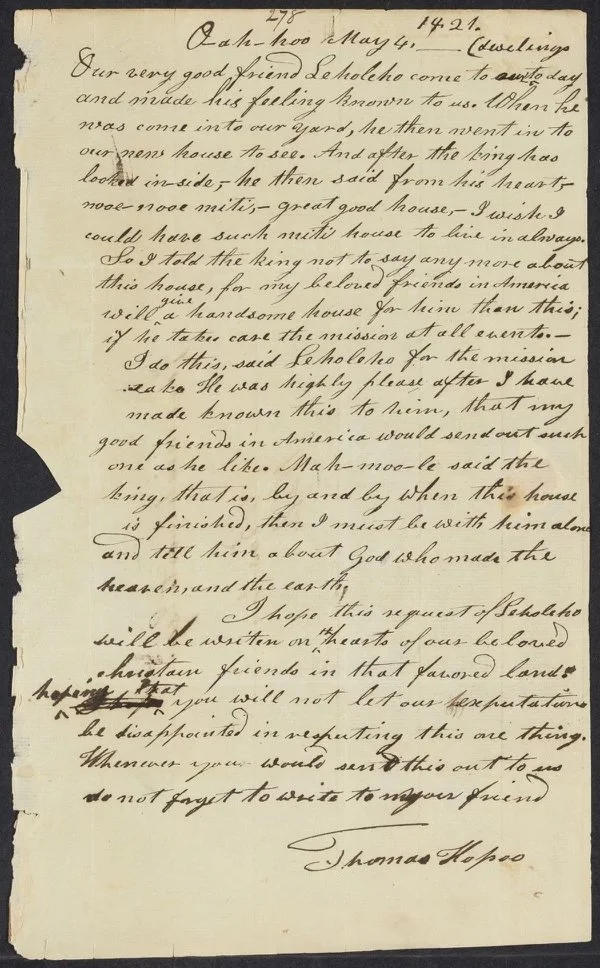 278
Oah-hoo May 4.— 1821.
(dwelings
Our very good friend Leholeho come to our to day
and made his feeling known to us. When he
was come into our yard, he then went in to
our new house to see. And after the king has
looked in-side,- he then said from his heart,-
nooe-nooe miti,- great good house,- I wish I
could have such miti house to live in always.
So I told the king not to say any more about
this house, for my beloved friends in America
will give a handsome house for him than this;
if he takes care the mission at all events.—
I do this, said Leholeho for the mission
sake He was highly please after I have
made known this to him, that my
good friends in America would send out such
one as he like. Mah-moo-le said the
king, that is, by and by when this house
is finished, then I must be with him alone
and tell him about God who made the
heaven, and the earth,
I hope this request of Leholeho
will be writen on the hearts of our beloved
christain friends in that favored land:
hoping that you will not let our expectations
be disappointed in respecting this one thing.
Whenever you would send this out to us
do not forget to write to your friend
Thomas Hopoo